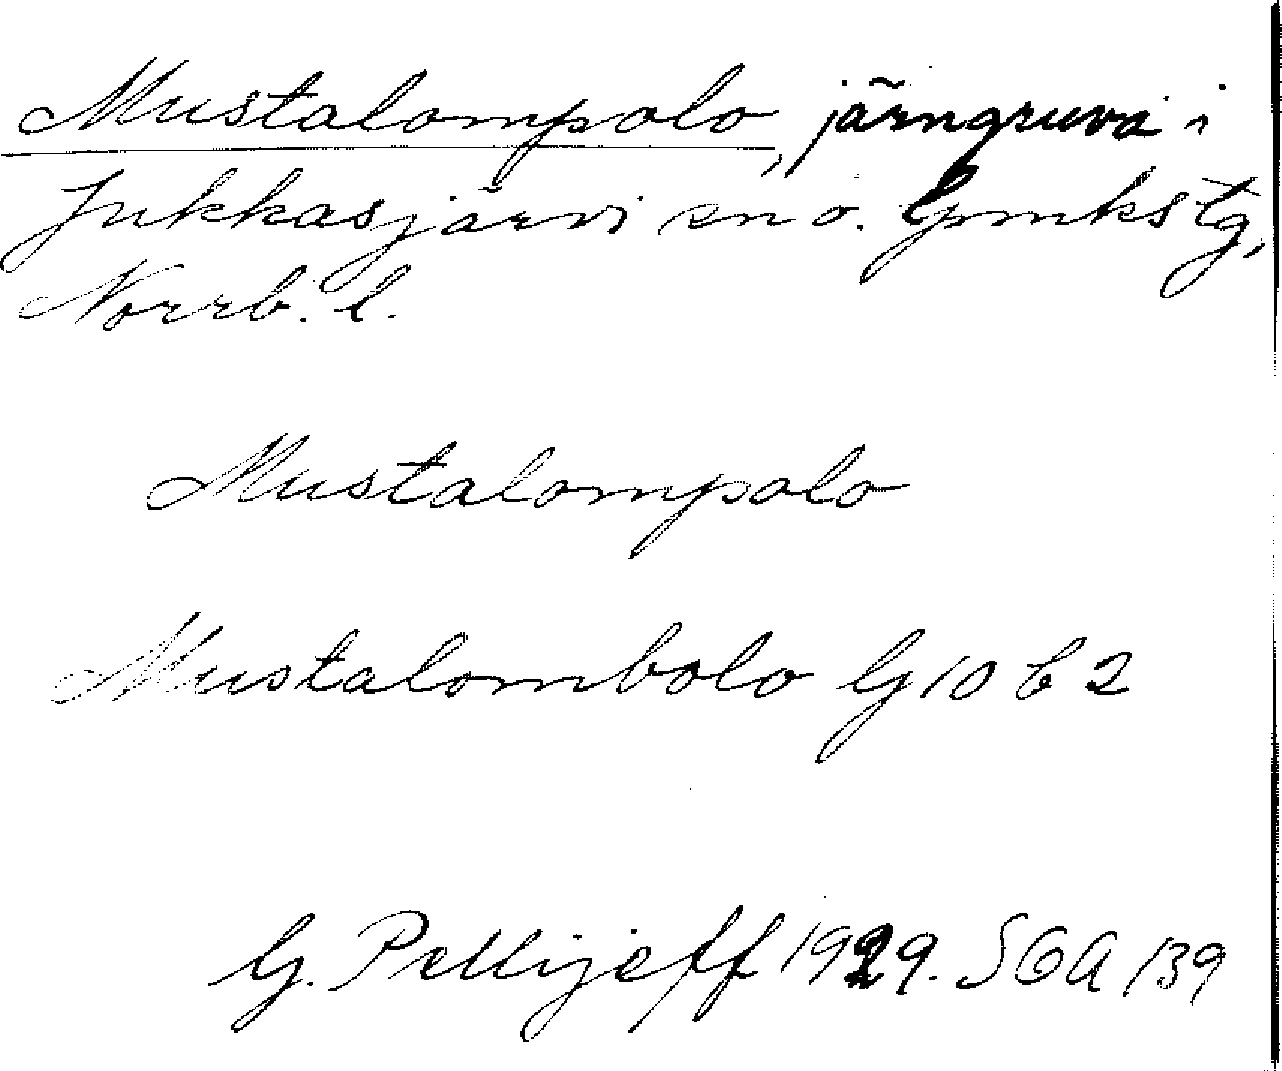 Mustalompolo, järngruva i
Jukkasjärvi sn o. Gmkstg,
Norrb. l.
Mustalompolo
Mustalombolo G 10 b 2
G. Pellijeff 1929. SOA 139